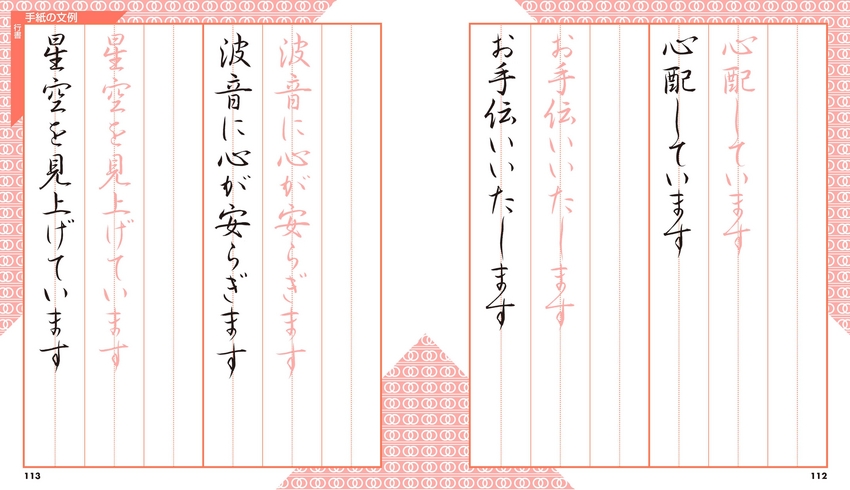 手紙の文例
行書
心配しています
心配しています
お手伝いいたします
お手伝いいたします
112
波音に心が安らぎます
波音に心が安らぎます
星空を見上げています
星空を見上げています
113